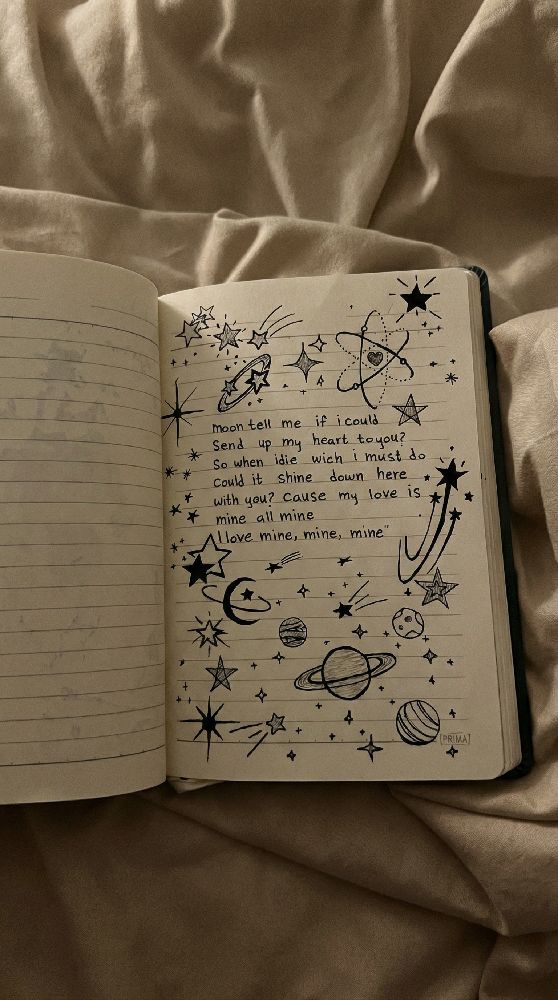 moon tell me if i could
Send up my heart to you?
So when idie wich i must do
Could it shine down here
with you? Cause my love is
mine all mine
I love mine, mine, mine"
[PRIMA]